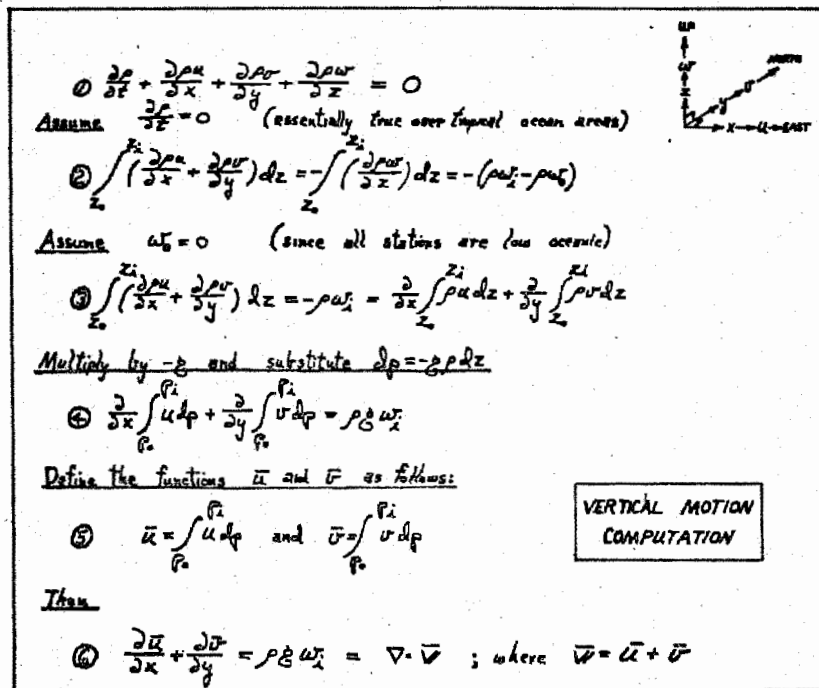 UP
w
z
NORTH
v
y
X → U → EAST
① ∂ρ/∂t + ∂ρu/∂x + ∂ρv/∂y + ∂ρw/∂z = 0
Assume ∂ρ/∂t = 0 (essentially true over tropical ocean areas)
② ∫_{z₀}^{zᵢ} (∂ρu/∂x + ∂ρv/∂y) dz = -∫_{z₀}^{zᵢ} (∂ρw/∂z) dz = -(ρwᵢ - ρw₀)
Assume w₀ = 0 (since all stations are low oceanic)
③ ∫_{z₀}^{zᵢ} (∂ρu/∂x + ∂ρv/∂y) dz = -ρwᵢ = ∂/∂x ∫_{z₀}^{zᵢ} ρu dz + ∂/∂y ∫_{z₀}^{zᵢ} ρv dz
Multiply by -g and substitute dp = -gρdz
④ ∂/∂x ∫_{p₀}^{pᵢ} u dp + ∂/∂y ∫_{p₀}^{pᵢ} v dp = ρg wᵢ
Define the functions ū and v̄ as follows:
⑤ ū = ∫_{p₀}^{pᵢ} u dp and v̄ = ∫_{p₀}^{pᵢ} v dp
VERTICAL MOTION
COMPUTATION
Then
⑥ ∂ū/∂x + ∂v̄/∂y = ρg wᵢ = ∇·V̄ ; where V̄ = ū + v̄